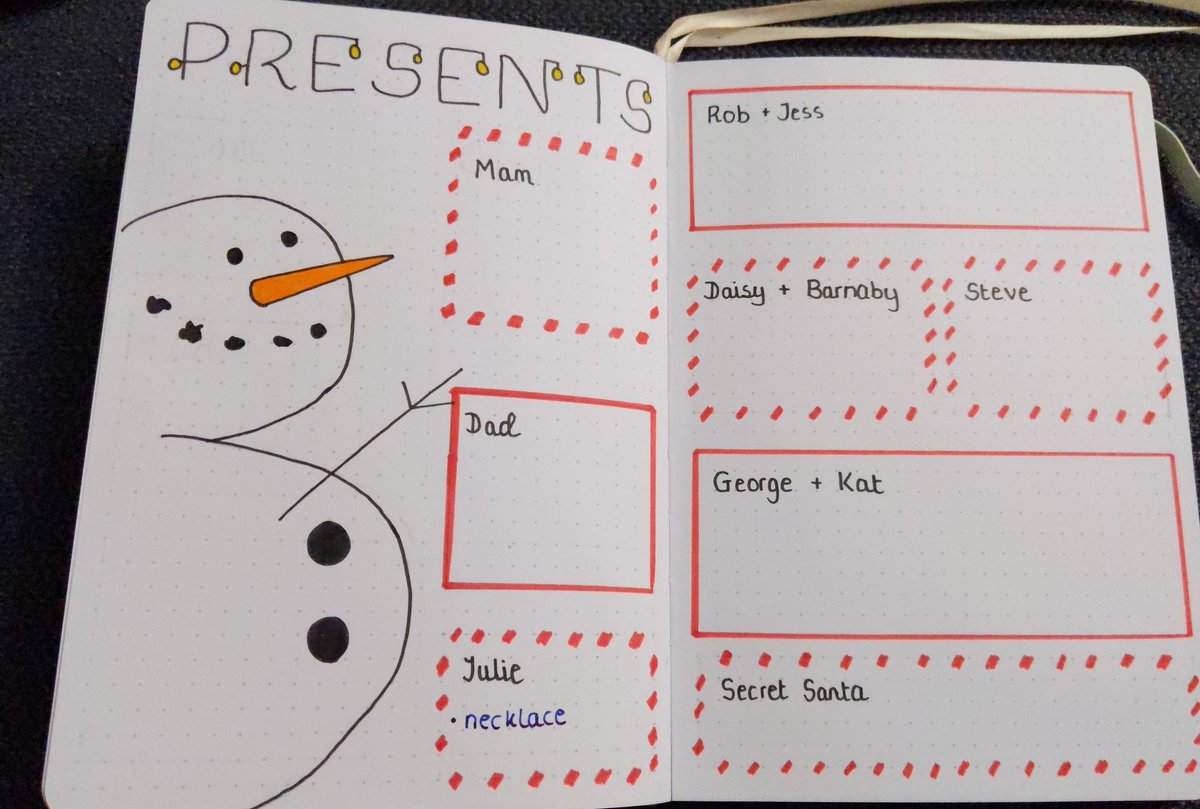 PRESENTS
Mam
Dad
Julie
• necklace
Rob + Jess
Daisy + Barnaby
Steve
George + Kat
Secret Santa